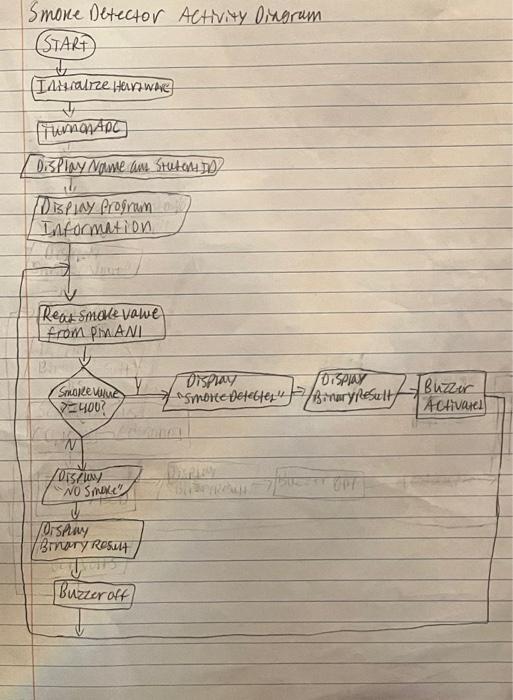 Smoke Detector Activity Diagram
START
Initialize Hardware
Turn on ADC
Display Name and Student ID
Display Program
Information
Read smoke value
from pin AN1
Smoke value
>=400?
Y
Display
"Smoke Detected"
Display
Binary Result
Buzzer
Activated
N
Display
"NO Smoke"
Display
Binary Result
Buzzer off